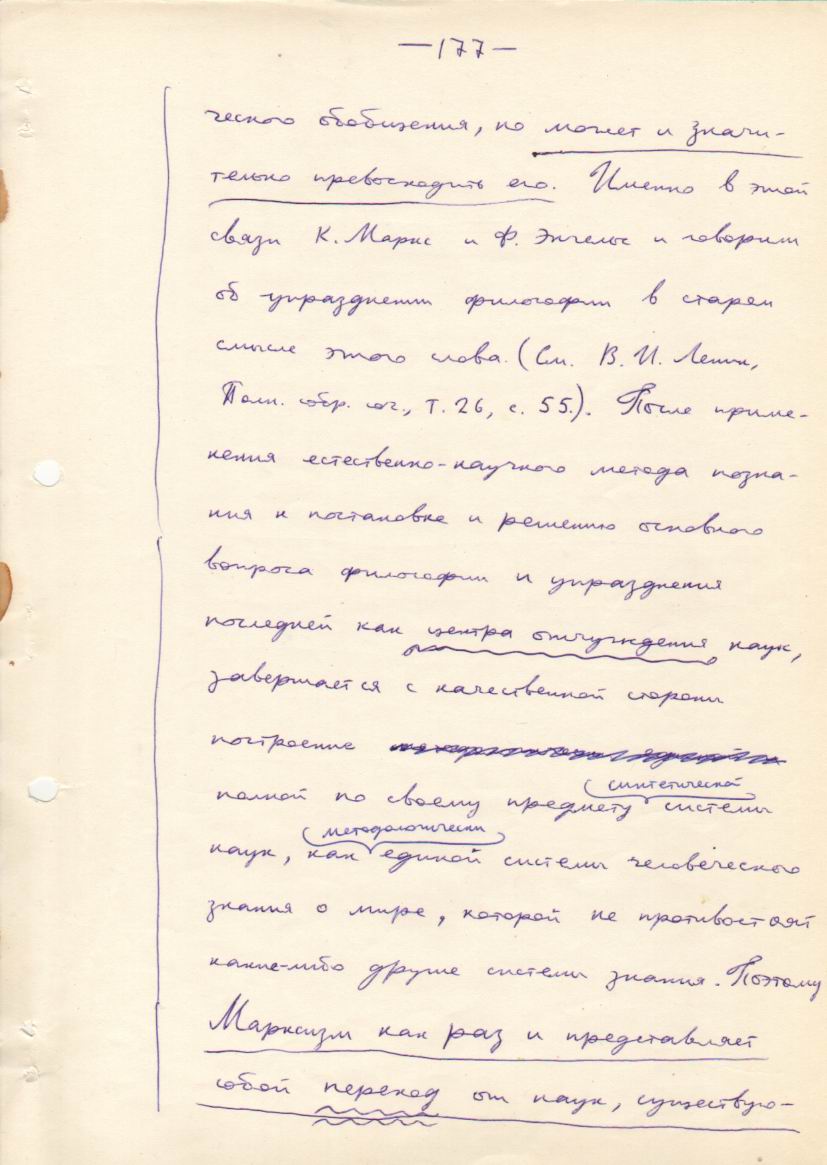 —177—
ческого обобщения, но может и значи-
тельно превосходить его. Именно в этой
связи К. Маркс и Ф. Энгельс и говорили
об упразднении философии в старом
смысле этого слова. (См. В. И. Ленин,
Полн. собр. соч., т. 26, с. 55.). После приме-
нения естественно-научного метода позна-
ния к постановке и решению основного
вопроса философии и упразднения
последней как центра отчуждения наук,
завершается с качественной стороны
построение
синтетической
полной по своему предмету системы
методологически
наук, как единой системы человеческого
знания о мире, которой не противостоят
какие-либо другие системы знания. Поэтому
Марксизм как раз и представляет
собой переход от наук, существую-